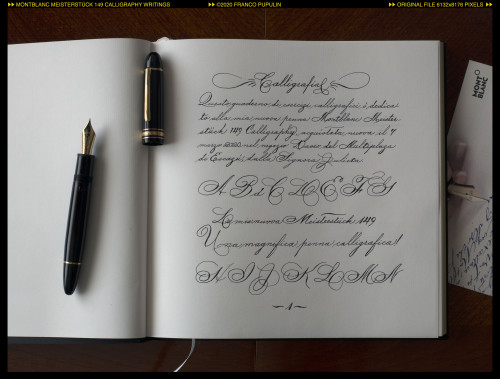 MONTBLANC MEISTERSTÜCK 149 CALLIGRAPHY WRITINGS
©2020 FRANCO PUPULIN
ORIGINAL FILE 8132x8176 PIXELS
Calligrafia
Questo quaderno di esercizi calligrafici è dedica-
to alla mia nuova penna Montblanc Meister-
stück 149 Calligraphy, acquistata nuova il 7
marzo 2020 nel negozio del Multiplaza
di Escazú dalla Signora Julieta
A B d C D E F G
La mia nuova Meisterstück 149
Una magnifica penna calligrafica!
H I J K L M N
~ 1 ~
MONT
BLANC